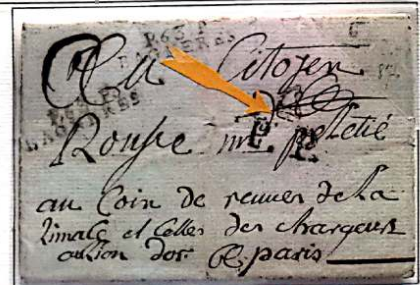 P.63.P.
BAGNERES
P.63.P.
BAGNERES
Au Citoyen
Roupe md peletié
au Coin de rennes de La
Limace et Celles des chargeurs
au lion dor. A paris